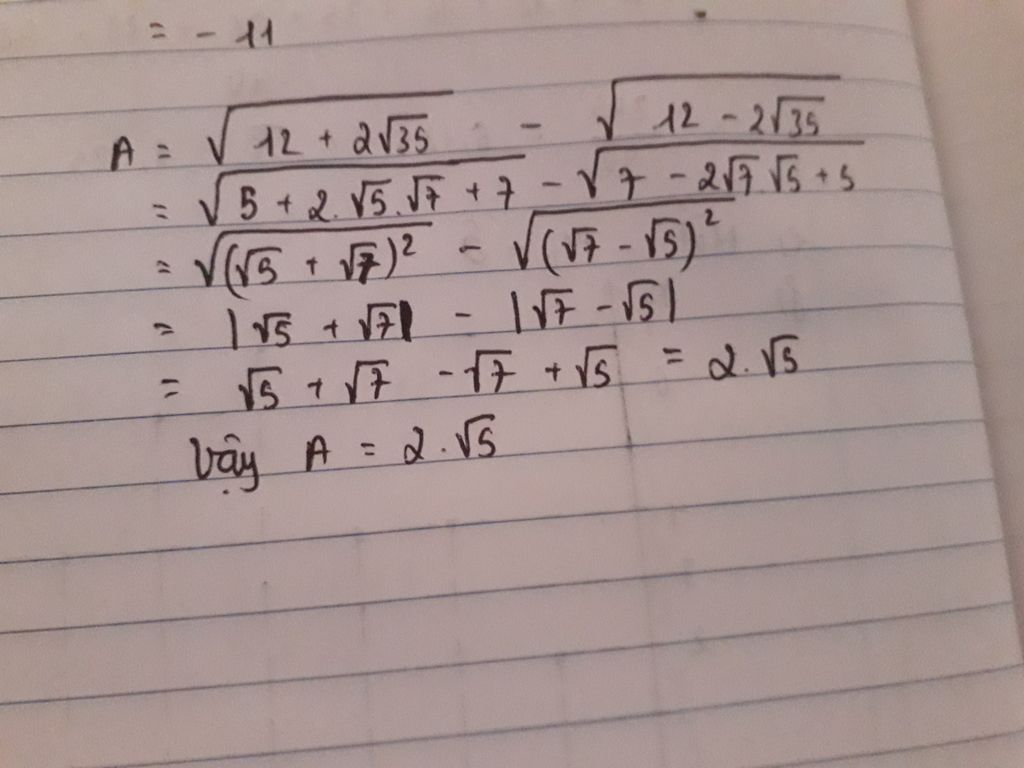 = - 11
A = √(12 + 2√35) - √(12 - 2√35)
= √(5 + 2.√5.√7 + 7) - √(7 - 2√7.√5 + 5)
= √((√5 + √7)²) - √((√7 - √5)²)
= |√5 + √7| - |√7 - √5|
= √5 + √7 - √7 + √5 = 2.√5
Vậy A = 2.√5